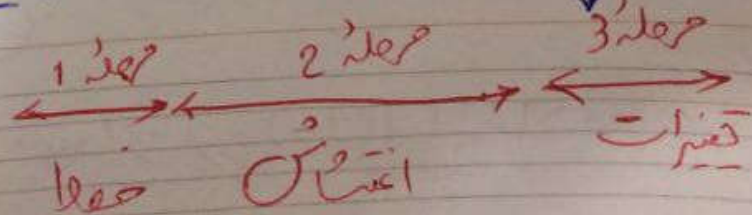 مرحلهٔ 1 مرحلهٔ 2 مرحلهٔ 3
اغتشاش تغییرات